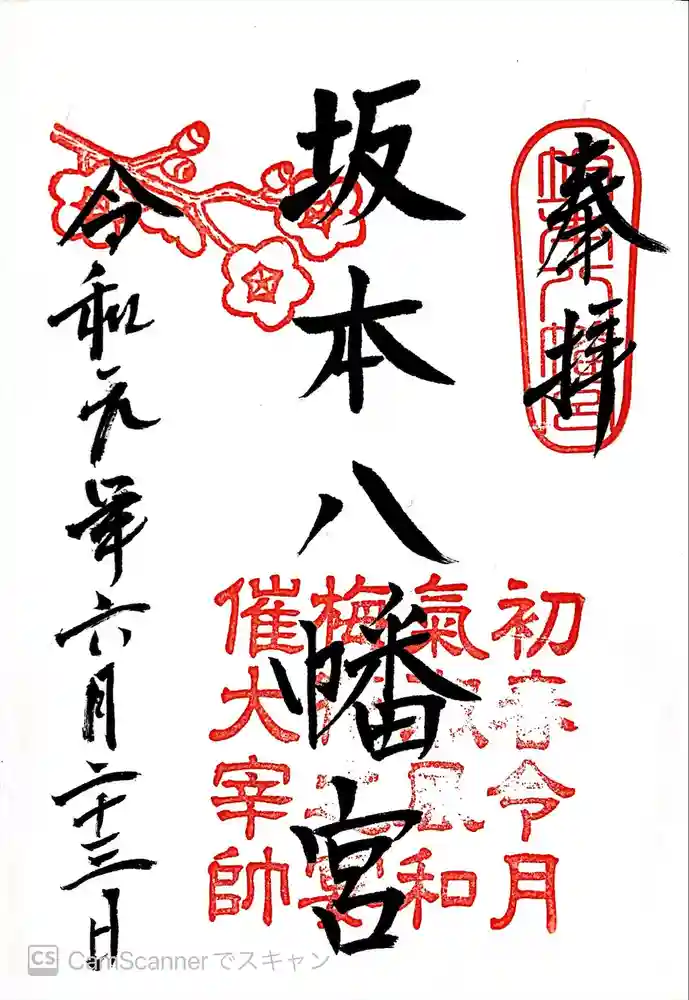 奉拝
坂本八幡宮
令和元年六月二十三日
初春令月
氣淑風和
梅
催大宰帥
CS CamScannerでスキャン